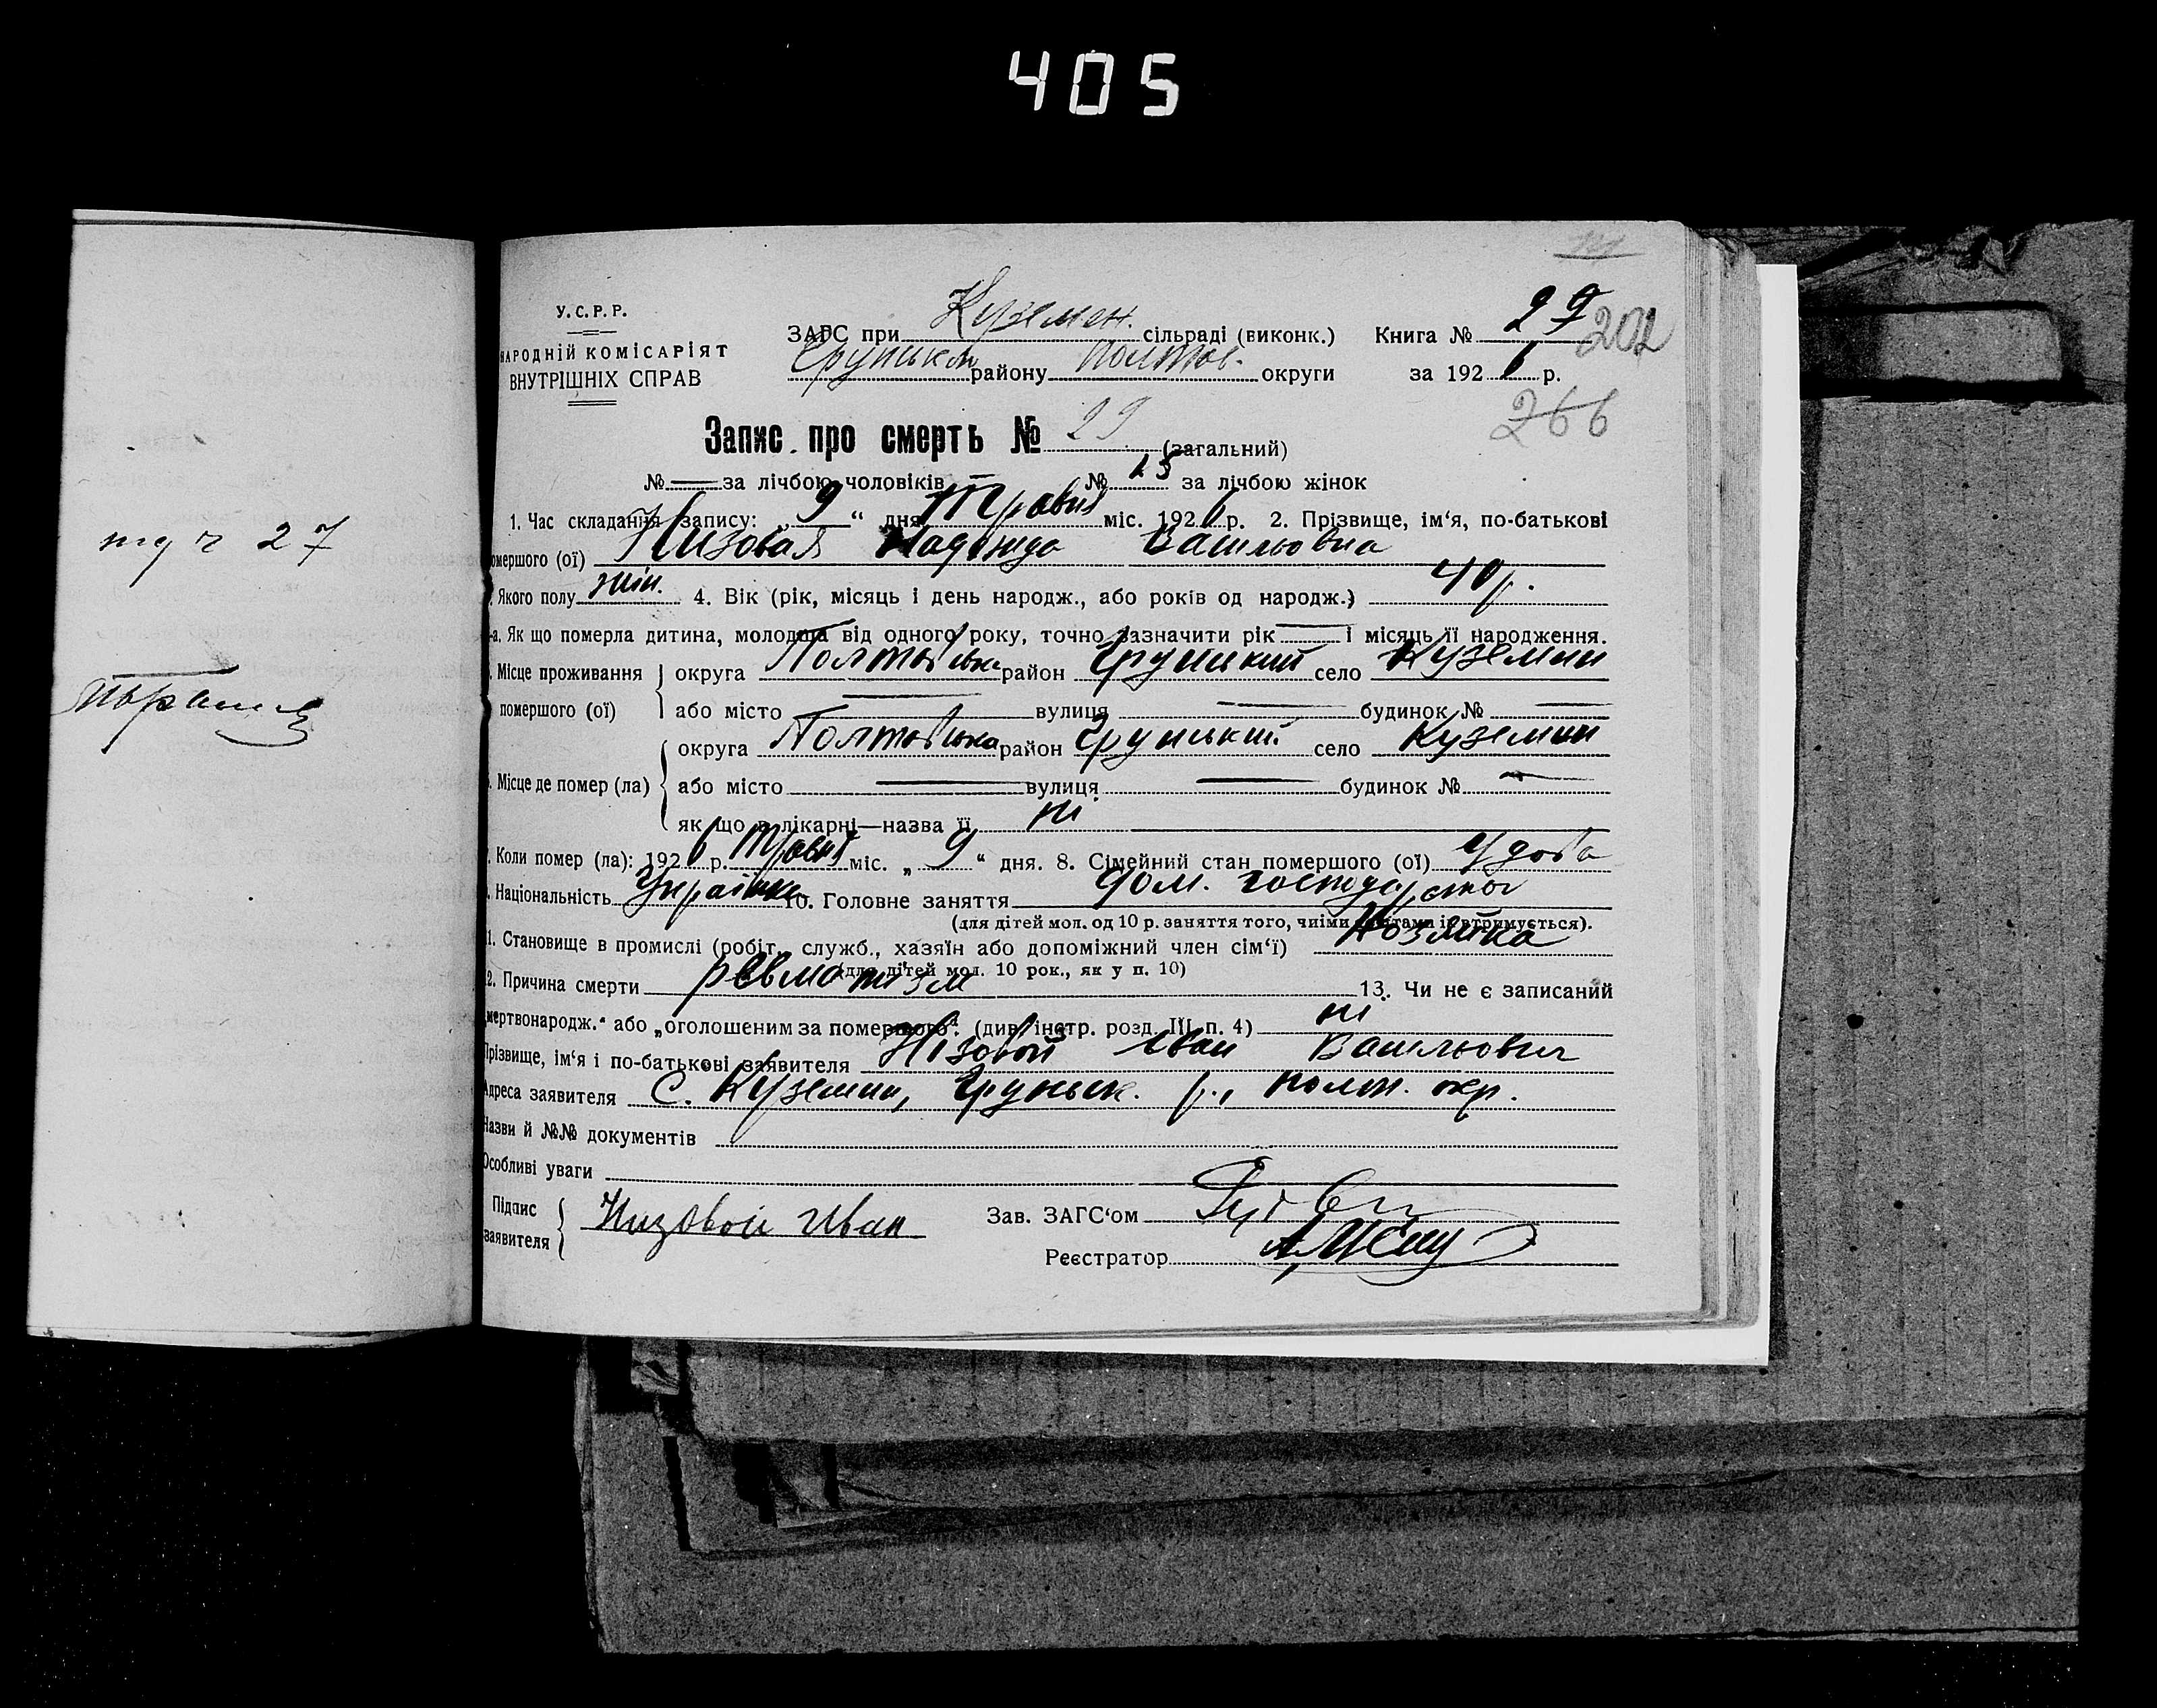 405
У.С.Р.Р.
НАРОДНІЙ КОМІСАРІЯТ
ВНУТРІШНІХ СПРАВ
ЗАГС при Куземен. сільраді (виконк.) Книга № 29
202
Грунськм району Полтов. округи за 1926 р.
266
Запис про смерть № 29 (загальний)
№ — за лічбою чоловіків — № 15 за лічбою жінок
1. Час складання запису: „9“ дня Травня міс. 1926 р. 2. Прізвище, ім‘я, по-батькові
омершого (ої) Низовая Надежда Васильовна
Якого полу жін. 4. Вік (рік, місяць і день народж., або років од народж.) 40 р.
-а. Як що померла дитина, молодша від одного року, точно зазначити рік — і місяць її народження.
Місце проживання помершого (ої) округа Полтавська район Грунський село Куземин
або місто — вулиця — будинок № —
Місце де помер (ла) округа Полтавська район Грунський село Куземин
або місто — вулиця — будинок № —
як що в лікарні—назва її ні
Коли помер (ла): 1926 р. Травня міс. „9“ дня. 8. Сімейний стан помершого (ої) Удова
Національність Українка 10. Головне заняття дом. господарство
(для дітей мол. од 10 р. заняття того, чиїми коштами їх втримується).
11. Становище в промислі (робіт., служб., хазяїн або допоміжний член сім‘ї) Хозяйка
(для дітей мол. 10 рок., як у п. 10)
12. Причина смерти ревматизм 13. Чи не є записаний
„мертвонародж.“ або „оголошеним за померлого“. (див. інстр. розд. III п. 4) ні
Прізвище, ім‘я і по-батькові заявителя Нізовой Іван Васильович
Адреса заявителя С. Куземин, Грунськ. р., Полт. окр.
Назви й №№ документів
Особливі уваги
Підпис заявителя Низовой Иван Зав. ЗАГС‘ом
Реєстратор
27